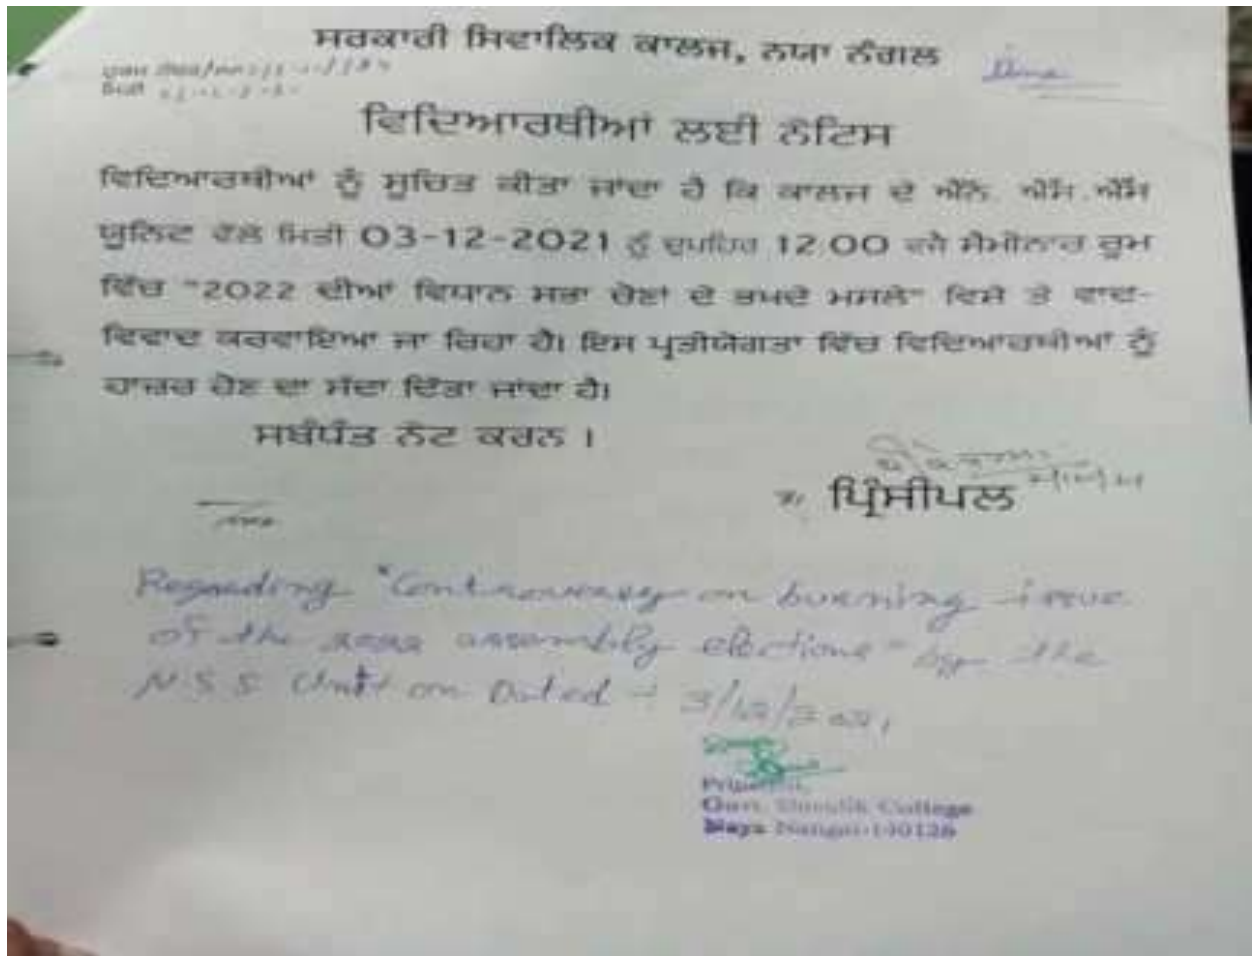 ਸਰਕਾਰੀ ਸਿਵਾਲਿਕ ਕਾਲਜ, ਨਯਾ ਨੰਗਲ
ਮਿਤੀ
ਵਿਦਿਆਰਥੀਆਂ ਲਈ ਨੋਟਿਸ
ਵਿਦਿਆਰਥੀਆਂ ਨੂੰ ਸੂਚਿਤ ਕੀਤਾ ਜਾਂਦਾ ਹੈ ਕਿ ਕਾਲਜ ਦੇ ਐੱਨ. ਐੱਸ.ਐੱਸ
ਯੂਨਿਟ ਵੱਲੋਂ ਮਿਤੀ 03-12-2021 ਨੂੰ ਦੁਪਹਿਰ 12:00 ਵਜੇ ਸੈਮੀਨਾਰ ਰੂਮ
ਵਿੱਚ "2022 ਦੀਆਂ ਵਿਧਾਨ ਸਭਾ ਚੋਣਾਂ ਦੇ ਭਖਦੇ ਮਸਲੇ" ਵਿਸ਼ੇ ਤੇ ਵਾਦ-
ਵਿਵਾਦ ਕਰਵਾਇਆ ਜਾ ਰਿਹਾ ਹੈ। ਇਸ ਪ੍ਰਤੀਯੋਗਤਾ ਵਿੱਚ ਵਿਦਿਆਰਥੀਆਂ ਨੂੰ
ਹਾਜ਼ਰ ਹੋਣ ਦਾ ਸੱਦਾ ਦਿੱਤਾ ਜਾਂਦਾ ਹੈ।
ਸਬੰਧੰਤ ਨੋਟ ਕਰਨ ।
ਪ੍ਰਿੰਸੀਪਲ
Regarding "Controversy on burning issue
of the 2022 assembly elections" by the
N.S.S Unit on Dated - 3/12/2021
Principal,
Govt. Shivalik College
Naya Nangal-140126